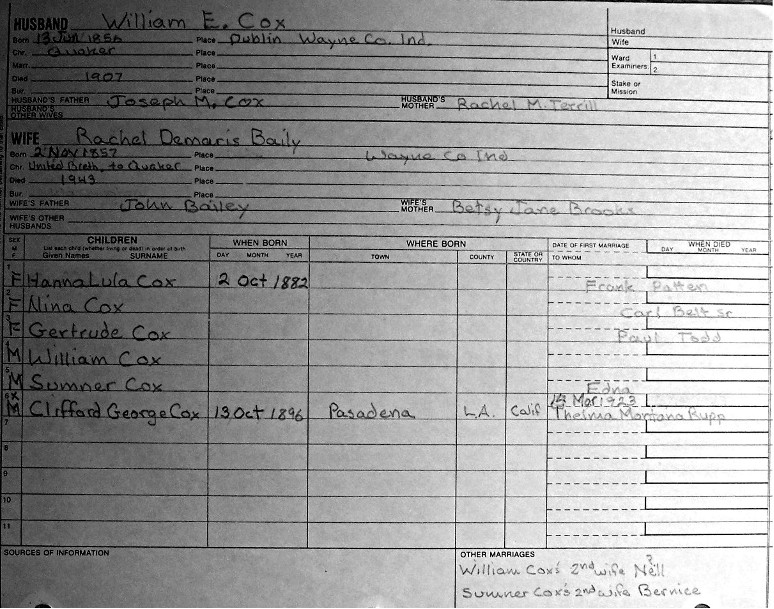 HUSBAND William E. Cox
Born 13 Jun 1856 Place Dublin Wayne Co. Ind.
Chr. Quaker Place
Marr. Place
Died 1907 Place
Bur. Place
HUSBAND'S FATHER Joseph M. Cox HUSBAND'S MOTHER Rachel M. Terrill
HUSBAND'S OTHER WIVES
Husband
Wife
Ward 1
Examiners 2
Stake or Mission
WIFE Rachel Demaris Baily
Born 2 Nov 1857 Place Wayne Co Ind
Chr. United Breth, to Quaker Place
Died 1943 Place
Bur. Place
WIFE'S FATHER John Bailey WIFE'S MOTHER Betsy Jane Brooks
WIFE'S OTHER HUSBANDS
SEX M F CHILDREN WHEN BORN WHERE BORN DATE OF FIRST MARRIAGE WHEN DIED
List each child (whether living or dead) in order of birth
Given Names SURNAME DAY MONTH YEAR TOWN COUNTY STATE OR COUNTRY TO WHOM DAY MONTH YEAR
1 F Hanna Lula Cox 2 Oct 1882 Frank Patten
2 F Nina Cox Carl Belt Sr
3 F Gertrude Cox Paul Todd
4 M William Cox
5 M Sumner Cox Edna
6 X M Clifford George Cox 13 Oct 1896 Pasadena L.A. Calif 15 Mar 1923
Thelma Montana Rupp
7
8
9
10
11
SOURCES OF INFORMATION OTHER MARRIAGES
William Cox's 2nd wife Nell ?
Sumner Cox's 2nd wife Bernice